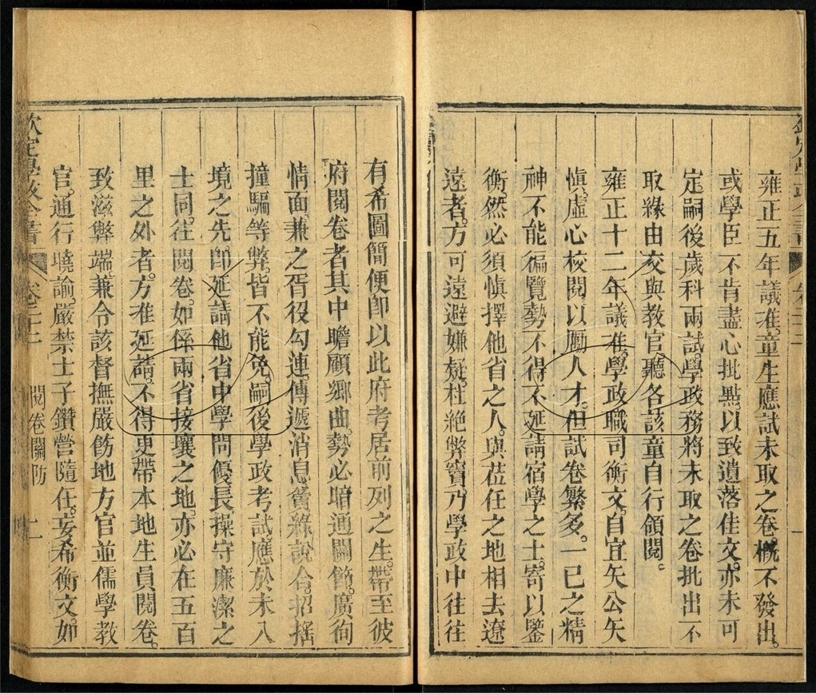 雍正五年議准。童生應試未取之卷。概不發出。
或學臣不肯盡心批點以致遺落佳文。亦未可
定嗣後歲科兩試。學政務將未取之卷批出不
取緣由。交與教官聽各該童自行領閱。
雍正十二年議准。學政職司衡文。自宜矢公矢
愼。虛心校閱以勵人才。但試卷繁多。一已之精
神不能徧覽勢不得不延請宿學之士。寄以鑒
衡。然必須愼擇他省之人。與莅任之地相去遼
遠者。方可遠避嫌疑。杜絶弊竇。乃學政中往往
有希圖簡便卽以此府考居前列之生。帶至彼
府閱卷者。其中瞻顧鄉曲勢必暗通關節。廣徇
情面兼之胥役勾連。傳遞消息。夤緣說合。招搖
撞騙等弊。皆不能免。嗣後學政考試。應於未入
境之先卽延請他省中學問優長操守廉潔之
士同往閱卷。如係兩省接壤之地。亦必在五百
里之外者。方准延請。不得更帶本地生員閱卷。
致滋弊端。兼令該督撫嚴飭地方官並儒學教
官。通行曉諭。嚴禁士子鑽營隨任。妄希衡文。如
欽定學政全書
卷二十二
閱卷關防
二